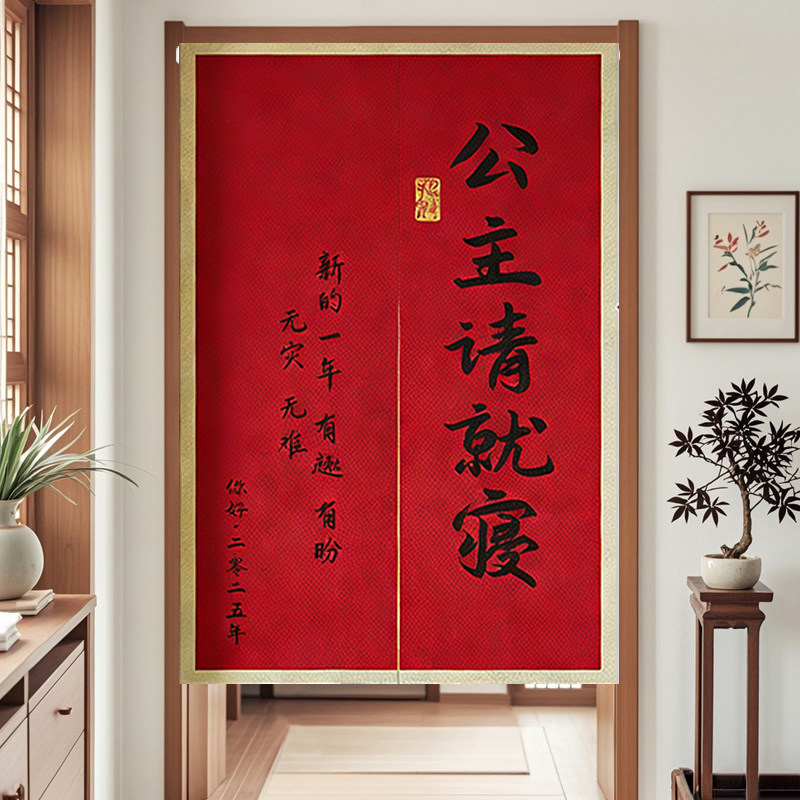 公主请就寝
新的一年 有趣 有盼
无灾 无难
你好·二零二五年